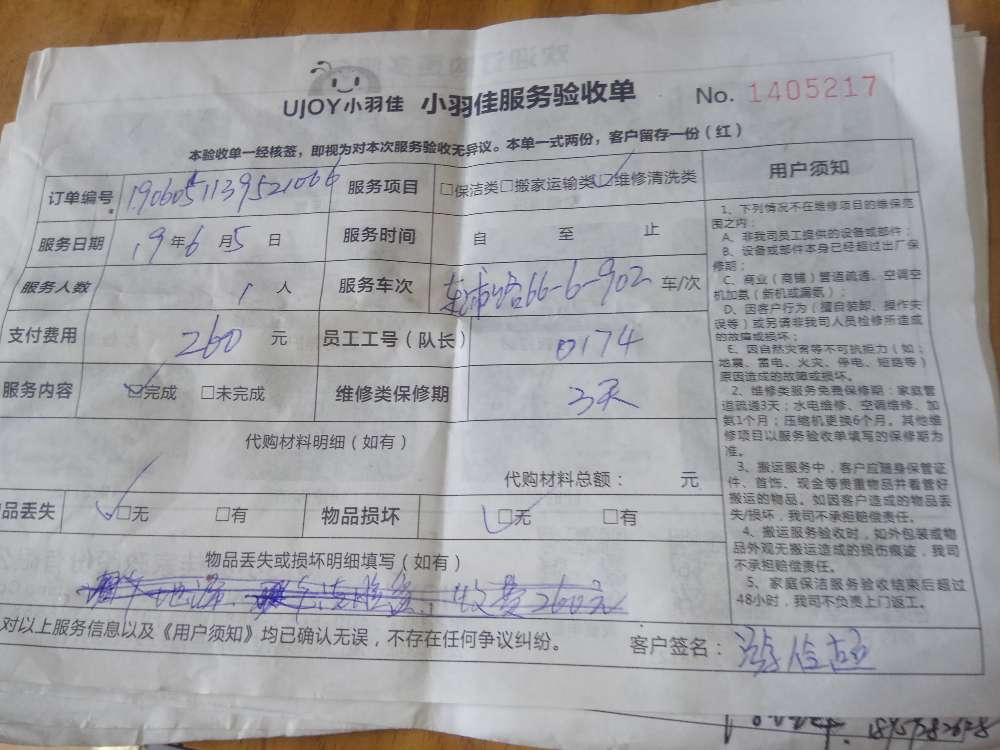 UJOY小羽佳 小羽佳服务验收单 No. 1405217
本验收单一经核签，即视为对本次服务验收无异议。本单一式两份，客户留存一份（红）
订单编号 1906051139521066 服务项目 □保洁类□搬家运输类☑维修清洗类
服务日期 19年6月5日 服务时间 自 至 止
服务人数 1人 服务车次 66-6-902 车/次
支付费用 260元 员工工号（队长） 0174
服务内容 ☑完成 □未完成 维修类保修期 3天
代购材料明细（如有）
代购材料总额： 元
品丢失 ☑无 □有 物品损坏 ☑无 □有
物品丢失或损坏明细填写（如有）
收费260元
对以上服务信息以及《用户须知》均已确认无误，不存在任何争议纠纷。
客户签名：
用户须知
1、下列情况不在维修项目的维保范
围之内：
A、非我司员工提供的设备或部件；
B、设备或部件本身已经超过出厂保
修期；
C、商业（商铺）管道疏通、空调空
机加氨（新机或漏氨）；
D、因客户行为（擅自装卸、操作失
误等）或另请非我司人员检修所造成
的故障或损坏；
E、因自然灾害等不可抗拒力（如：
地震、雷电、火灾、停电、短路等）
原因造成的故障或损坏。
2、维修类服务免费保修期：家庭管
道疏通3天；水电维修、空调维修、加
氨1个月；压缩机更换6个月。其他维
修项目以服务验收单填写的保修期为
准。
3、搬运服务中，客户应随身保管证
件、首饰、现金等贵重物品并看管好
搬运的物品。如因客户造成的物品丢
失/损坏，我司不承担赔偿责任。
4、搬运服务验收时，如外包装或物
品外观无搬运造成的损伤痕迹，我司
不承担赔偿责任。
5、家庭保洁服务验收结束后超过
48小时，我司不负责上门返工。